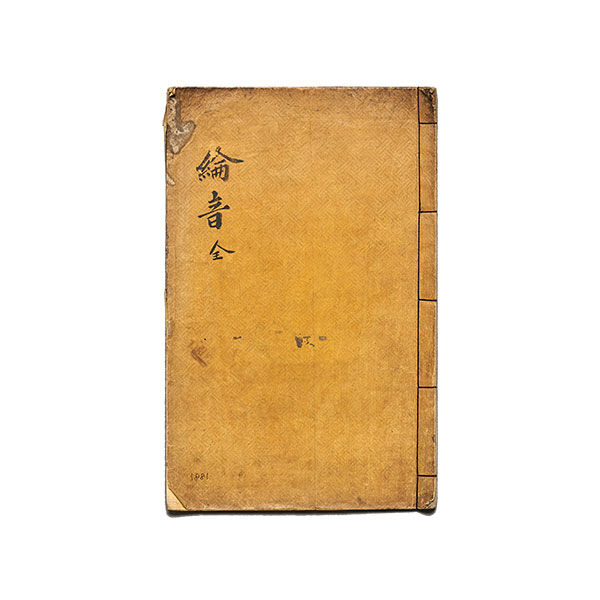 綸音
全
1881